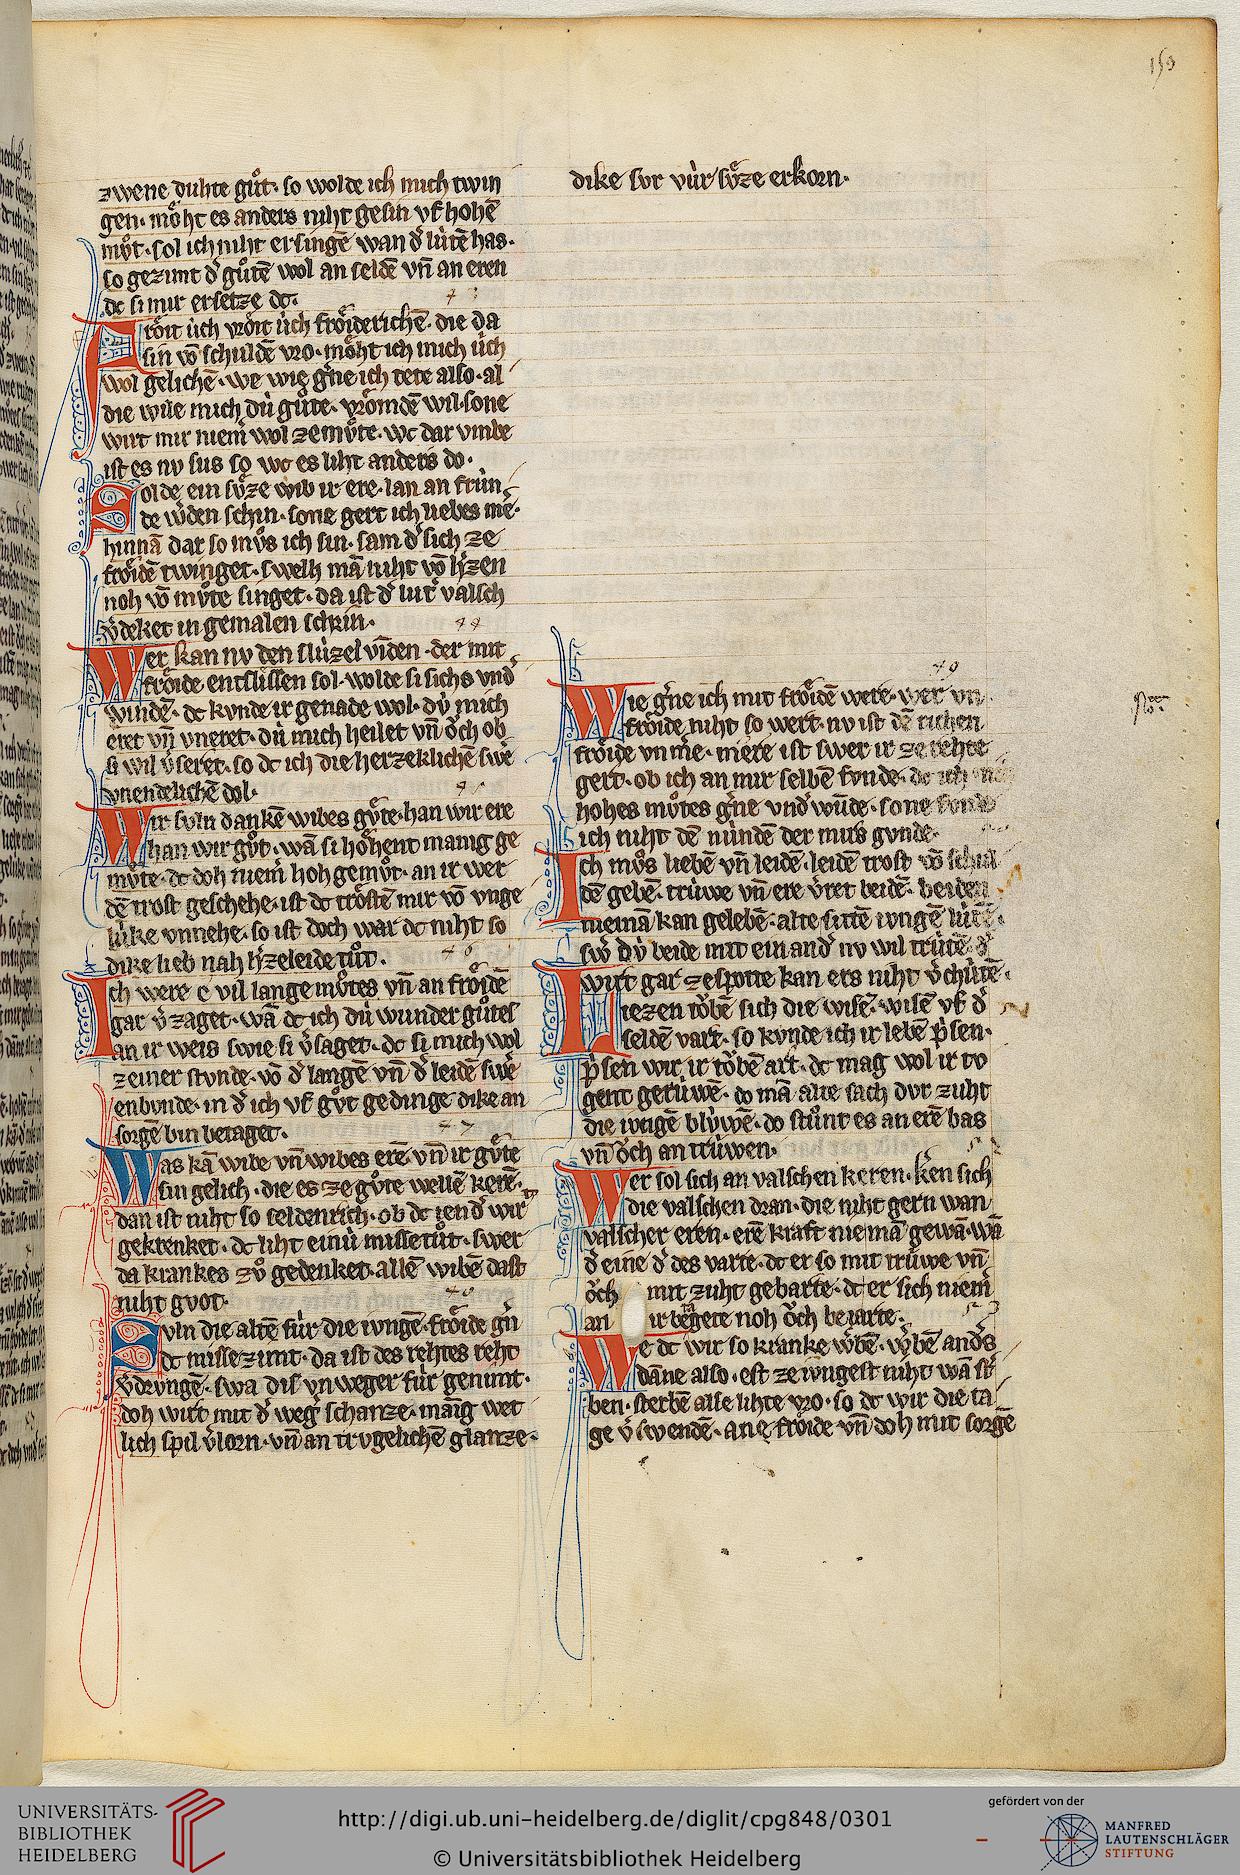 153
zwene duhte gůt· so wolde ich mich twin
gen· mo̊ht es anders niht gesin vf hohē
mv̊t· sol ich niht ersingē wan d̾ lu̇tē has·
so gezimt d̾ gůtē wol an seldē vn̄ an eren
dc si mir ersetze dc·
Fro̊it u̇ch vro̊it u̇ch fro̊iderichē· die da
sin vō schuldē vro· mo̊ht ich mich u̇ch
wol gelichē· we wie g̾ne ich tete also· al
die wile mich du̇ gůte· vro̊mdē wil· sone
wirt mir niem̄ wol ze mv̊te· wc dar vmbe
ist es nv sus so wc es liht anders do·
Solde ein sv̊ze wib ir ere· lan an fru̇n
de w̾den schin· sone gert ich liebes me·
hinnā dar so mv̊s ich sin· sam d̾ sich ze
fro̊idē twinget· swelh mā niht vō h̾zen
noh vō mv̊te singet· da ist d̾ lut̾ valsch
v̾deket in gemalen schrin·
44
Wer kan nv den slu̇zel vīden· der mir
fro̊ide entslissen sol· wolde si sichs vnd̾
windē· dc kvnde ir genade wol· du̇ mich
eret vn̄ vneret· du̇ mich heilet vn̄ o̊ch ob
si wil v̾seret· so dc ich die herzeklichē swē
vnendelichē dol·
Wir svln dankē wibes gv̊te· han wir ere
han wir gůt· wā si ho̊hent manig ge
mv̊te· dc doh niem̄ hoh gemůt· an ir wer
dē trost geschehe· ist dc tro̊stē mir vō vnge
lu̇ke vnnehe· so ist doch war dc niht so
dike lieb nah h̾zeleide tůt·
46
Ich were e vil lange mv̊tes vn̄ an fro̊idē
gar v̾zaget· wā dc ich du̇ wunder gůtes
an ir weis swie si v̾saget· dc si mich wol
zeiner stvnde· vō d̾ langē vn̄ d̾ leidē swē
enbvnde· in d̾ ich vf gvt gedinge dike an
sorgē bin betaget·
47
Was kā wibe vn̄ wibes erē· vn̄ ir gv̊te
sin gelich· die es ze gůte wellē kerē·
dan ist niht so seldenrich· ob dc iend̾ wir
gekrenket· dc liht einu̇ missetůt· swer
da krankes zv̊ gedenket· allē wibē dast
niht gvot·
Svln die altē fu̇r die ivngē· fro̊ide g̾n
dc missezimt· da ist des rehtes reht
v̾drvngē· swa dis vnweger fu̇r genimt·
doh wirt mit d̾ weg̾ schanze· manīg wet
lich spil v̾lorn· vn̄ an trvgelichē glanze·
dike svr vu̇r sv̊ze erkorn·
Wie g̾ne ich mit fro̊idē were· wer vn
fro̊ide niht so wert· nv ist dē richen
fro̊ide vnm̄e· mere ist swer ir ze rehte
gert· ob ich an mir selbē fvnde· dc ich
hohes mv̊tes g̾ne vnd̾ wūde· sone
ich niht dē nu̇ndē der mirs gvnde·
Ich mv̊s liebē vn̄ leidē· leidē trost vō schul
dē gebē· tru̇we vn̄ ere v̾ret beidē· beiden
niemā kan gelebē· alte sittē ivngē lu̇tē·
sw̾ dv̇ beide mit ein and̾ nv wil tru̇tē· d̾
wirt gar ze spotte kan ers niht v̾chu̇tē·
Liezen to̊bē sich die wisē· wisē vf d̾
seldē vart· so kvnde ich ir lebē p̾sen·
p̾sen wir ir to̊bē art· dc mag wol ir tv
gent geru̇wē· do mā alle sach dvr zuht
die ivngē blu̇wē· do stůnt es an erē bas
vn̄ o̊ch an tru̇wen·
Wer sol sich an valschen keren· k̾en sich
die valschen dran· die niht gern wan
valscher eren· erē kraft niemā gewā· wā
d̾ eine d̾ des varte· dc er so mit tru̇we vn̄
o̊ch mit zuht gebarte· dc er sich niem̄
an ir begete noh o̊ch beiarte·
We dc wir so kranke w̾bē· w̾bē and̾s
dāne also· est ze ivngest niht wā st̾
ben· sterbē alle lihte vro· so dc wir die ta
ge v̾swendē· ane fro̊ide vn̄ doh mit sorgē
UNIVERSITÄTS-
BIBLIOTHEK
HEIDELBERG
http://digi.ub.uni-heidelberg.de/diglit/cpg848/0301
© Universitätsbibliothek Heidelberg
gefördert von der
MANFRED
LAUTENSCHLÄGER
STIFTUNG